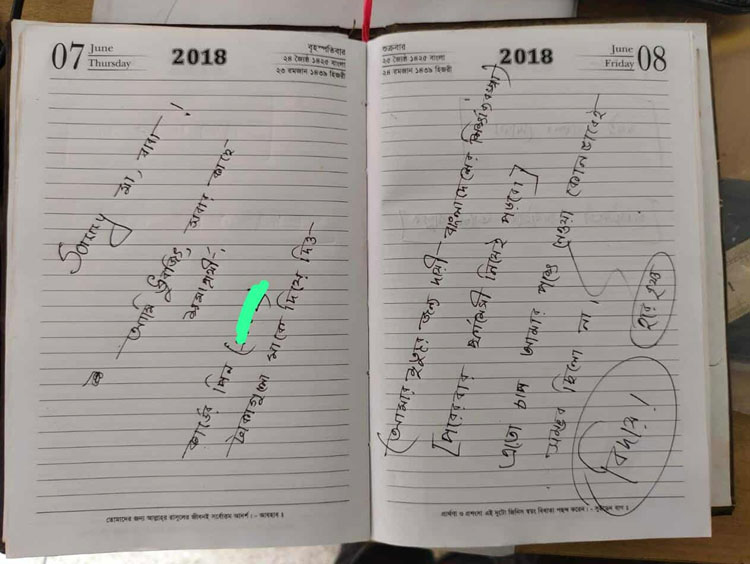 07
June
Thursday
2018
বৃহস্পতিবার
২৪ জ্যৈষ্ঠ ১৪২৫ বাংলা
২৩ রমজান ১৪৩৯ হিজরী
Sorry মা, বাবা !
আমি ধ্রুবজিৎ, সবার কাছে
ক্ষমাপ্রার্থী।
কার্ডের পিন (
টাকাগুলো মাকে দিয়ে দিও
তোমাদের জন্য আল্লাহ্‌র রাসূলের জীবনই সর্বোত্তম আদর্শ। - আহযাব ঃ
শুক্রবার
২৫ জ্যৈষ্ঠ ১৪২৫ বাংলা
২৪ রমজান ১৪৩৯ হিজরী
2018
June
Friday
08
(আমার মৃত্যুর জন্য দায়ী বাংলাদেশের শিক্ষাব্যবস্থা)
[পরেরবার ফার্মেসী নিয়েই পড়বো]
এতো চাপ আমার পক্ষে নেওয়া কোনভাবেই
সম্ভব ছিলো না।
হরে কৃষ্ণ
বিদায় !
প্রার্থনা ও প্রশংসা এই দুটো জিনিস স্বয়ং বিধাতা পছন্দ করেন।